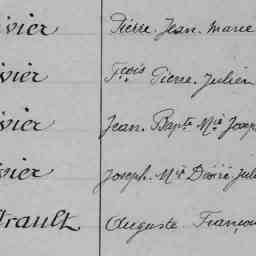 vier Pierre Jean Marie
vier Fçois Pierre Julien
vier Jean Bapte Mie Josep
vier Joseph Mie Désiré Jul
rault Auguste Françoi